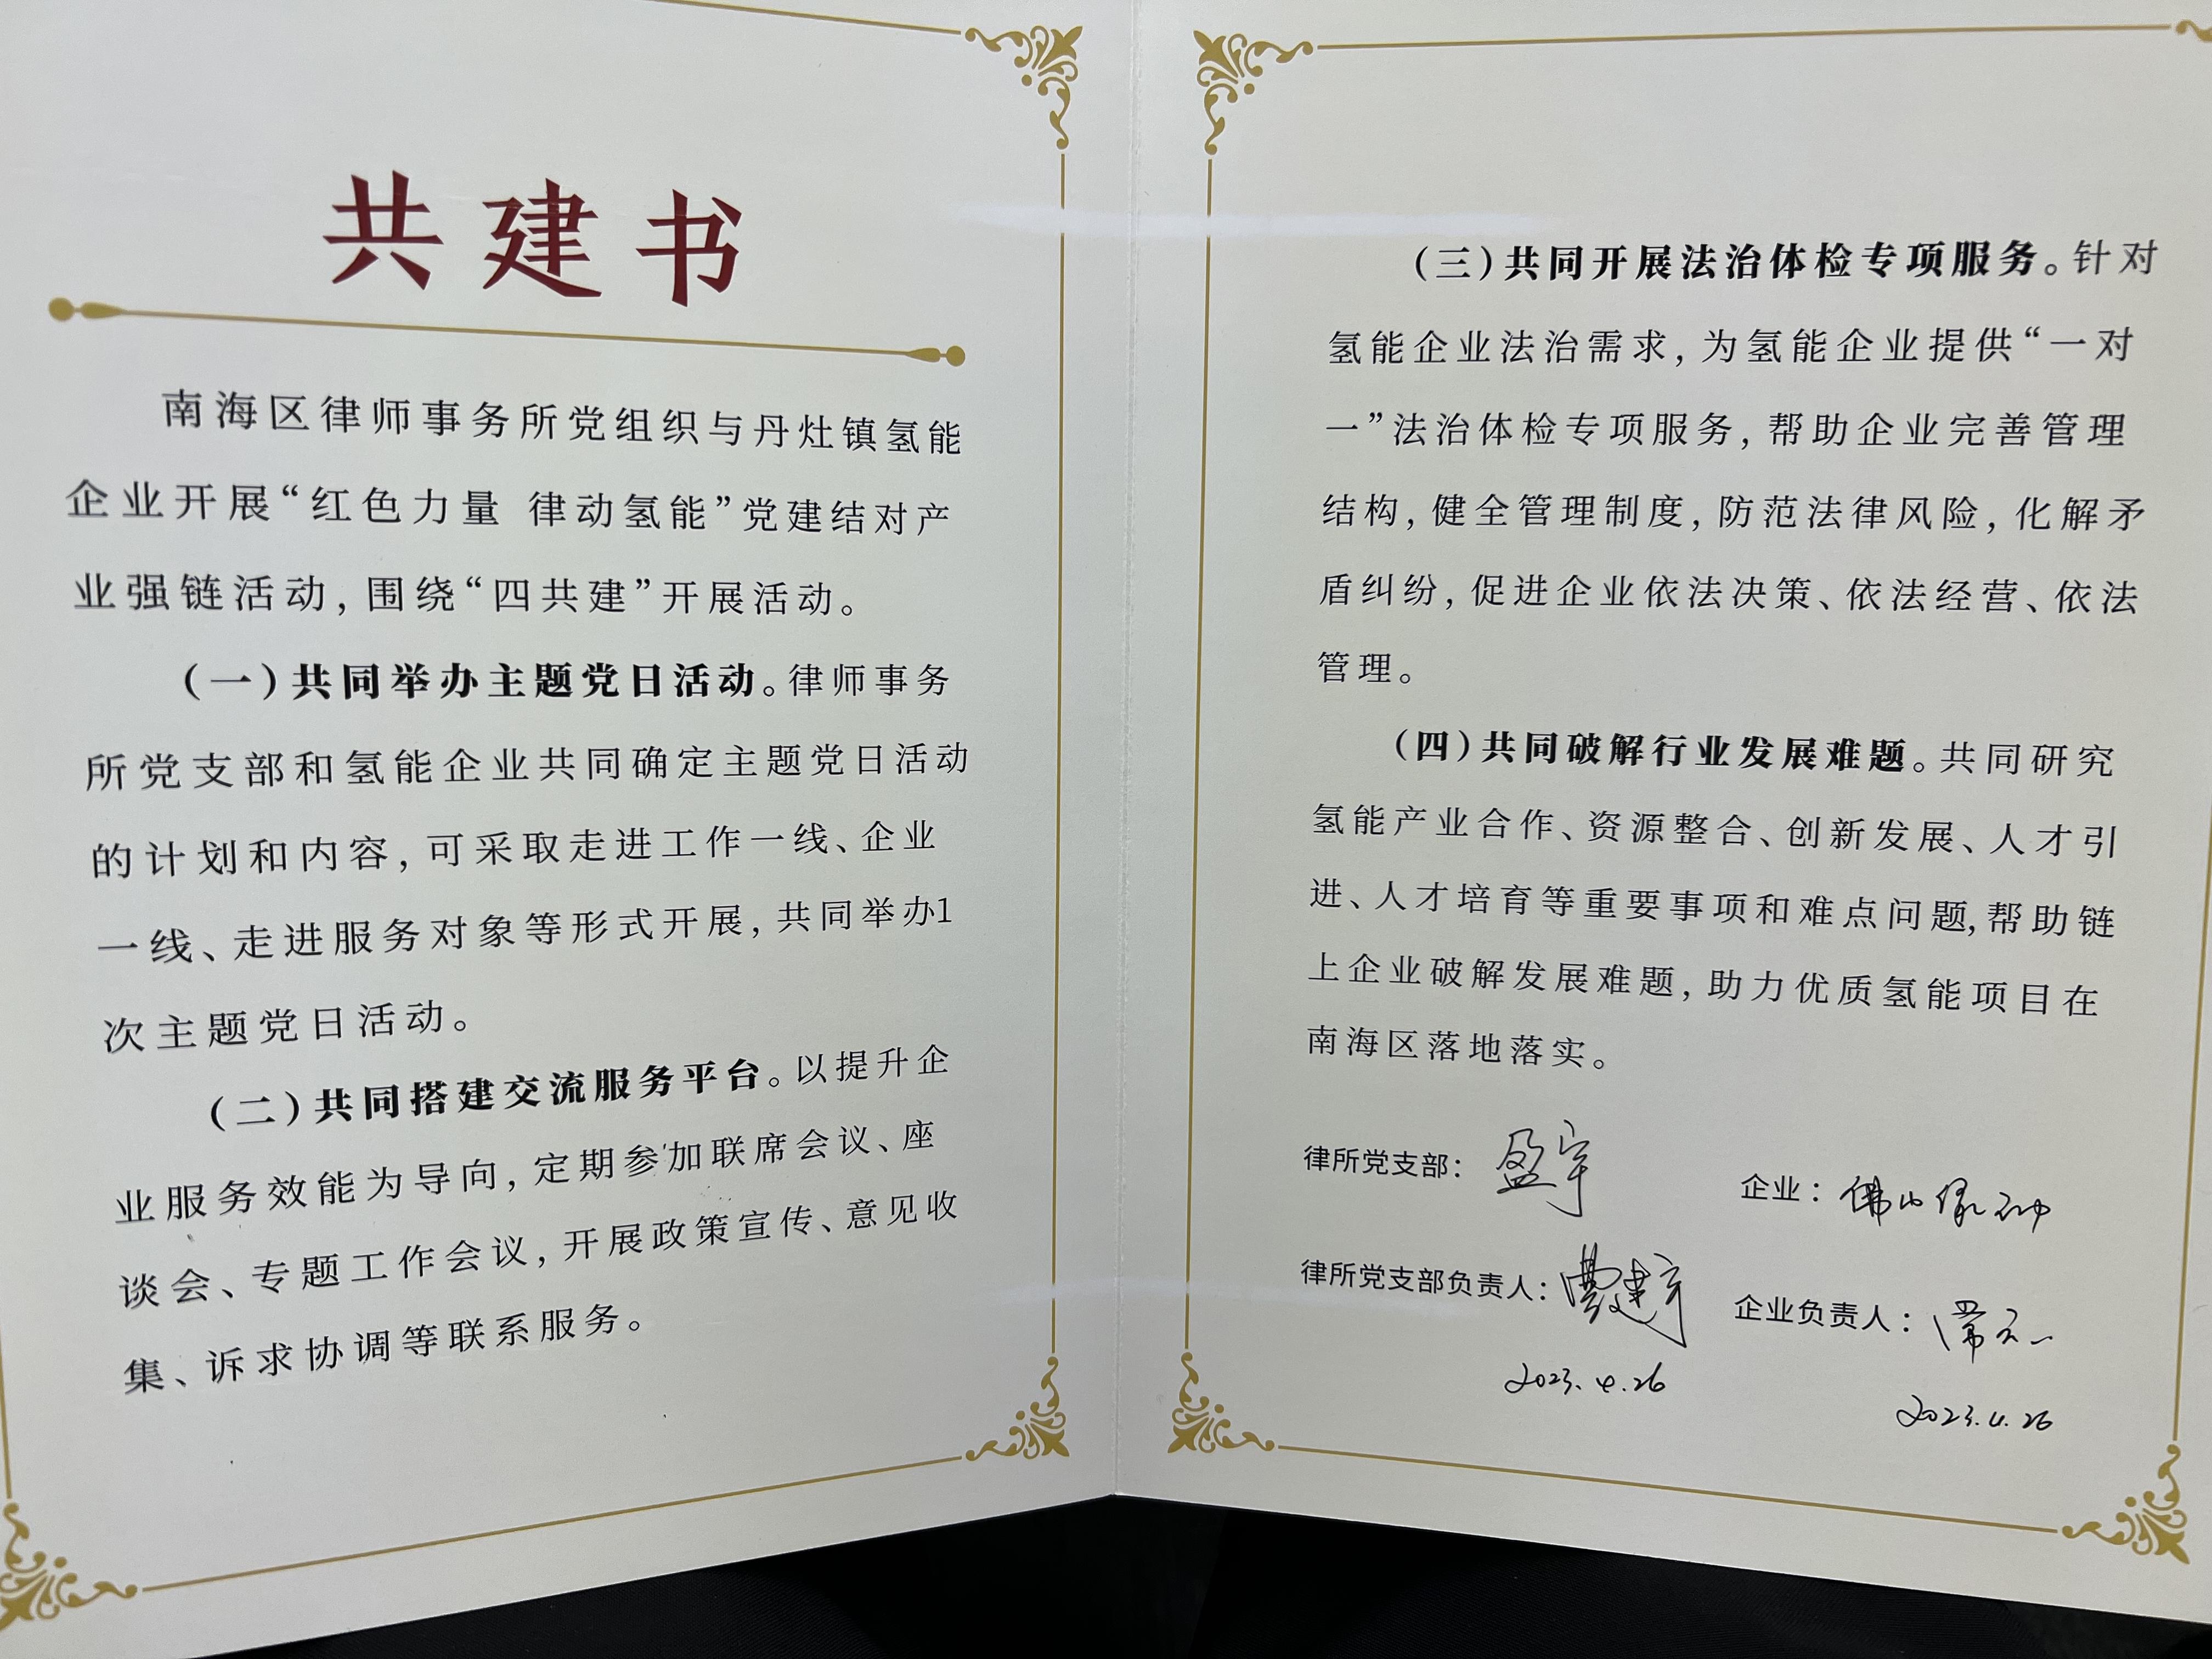 共建书
南海区律师事务所党组织与丹灶镇氢能
企业开展“红色力量 律动氢能”党建结对产
业强链活动，围绕“四共建”开展活动。
（一）共同举办主题党日活动。律师事务
所党支部和氢能企业共同确定主题党日活动
的计划和内容，可采取走进工作一线、企业
一线、走进服务对象等形式开展，共同举办1
次主题党日活动。
（二）共同搭建交流服务平台。以提升企
业服务效能为导向，定期参加联席会议、座
谈会、专题工作会议，开展政策宣传、意见收
集、诉求协调等联系服务。
（三）共同开展法治体检专项服务。针对
氢能企业法治需求，为氢能企业提供“一对
一”法治体检专项服务，帮助企业完善管理
结构，健全管理制度，防范法律风险，化解矛
盾纠纷，促进企业依法决策、依法经营、依法
管理。
（四）共同破解行业发展难题。共同研究
氢能产业合作、资源整合、创新发展、人才引
进、人才培育等重要事项和难点问题，帮助链
上企业破解发展难题，助力优质氢能项目在
南海区落地落实。
律所党支部：盈宇
企业：佛山
律所党支部负责人：
企业负责人：
2023.4.26
2023.4.26